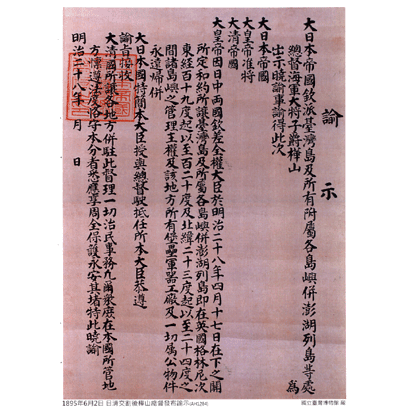 諭 示
大日本帝國欽派臺灣島及所有附屬各島嶼併澎湖列島等處
總督海軍大將子爵樺山 為
出示曉諭事諭得此次
大日本帝國
大皇帝准特
大清帝國
大皇帝因日中兩國欽差全權大臣於明治二十八年四月十七日在下之關
所定和約所讓臺灣島及所屬各島嶼併澎湖列島即在英國格林尼次
東經百十九度起以至百二十度及北緯二十三度起以至二十四度之
間諸島嶼之管理主權及該地方所有堡壘軍器工廠及一切屬公物件
永遠歸併
大日本國特簡本大臣授與總督駛抵任所本大臣恭遵
諭旨接收
大清國所讓各地方併駐此督理一切治民事務凡爾眾庶在本國所管地
方懍遵法度恪守本分者悉應享周全保護永安其堵特此曉諭
明治二十八年 月 日
1895年6月2日 日清交割後樺山總督發布諭示
國立臺灣博物館